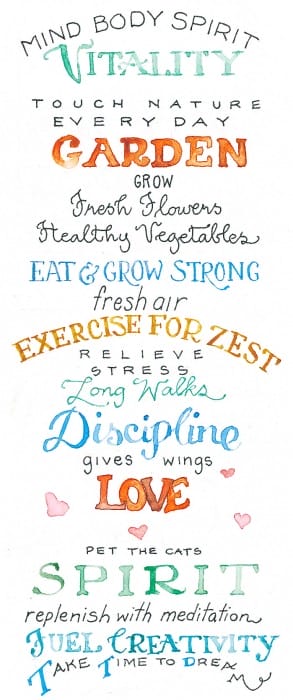 MIND BODY SPIRIT
VITALITY
TOUCH NATURE
EVERY DAY
GARDEN
GROW
Fresh Flowers
Healthy Vegetables
EAT & GROW STRONG
fresh air
EXERCISE FOR ZEST
RELIEVE
STRESS
Long Walks
Discipline
gives wings
LOVE
PET THE CATS
SPIRIT
replenish with meditation
FUEL CREATIVITY
TAKE TIME TO DREAM